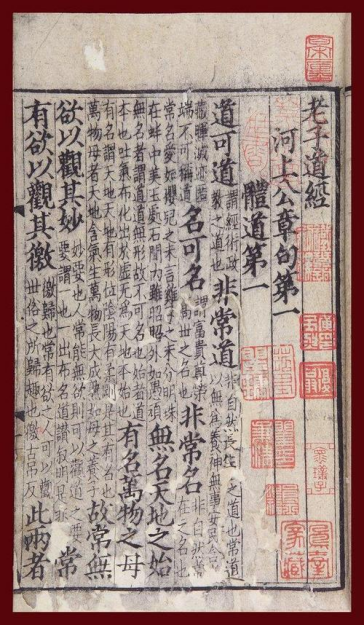 老子道經
河上公章句第一
體道第一
道可道謂經術政教之道也非常道非自然長生之道也常道當以無為養神無事安民含光
藏暉滅迹匿端不可稱道名可名謂富貴尊榮高世之名也非常名非自然常在之名也
常名愛如嬰兒之未言雞子之未分明珠在蚌中美玉處石間內雖昭昭外如愚頑無名天地之始
無名者謂道道無形故不可名也始者道本也吐氣布化出於虛無為天地本始也有名萬物之母
有名謂天地天地有形位陰陽有柔剛是其有名也萬物母者天地含氣生萬物長大成熟如母之養子故常無
欲以觀其妙妙要也人常能無欲則可以觀道之要要謂一也一出布名道讚叙明是非常
有欲以觀其徼徼歸也常有欲之人可以觀世俗之所歸趣也徼古吊反此兩者